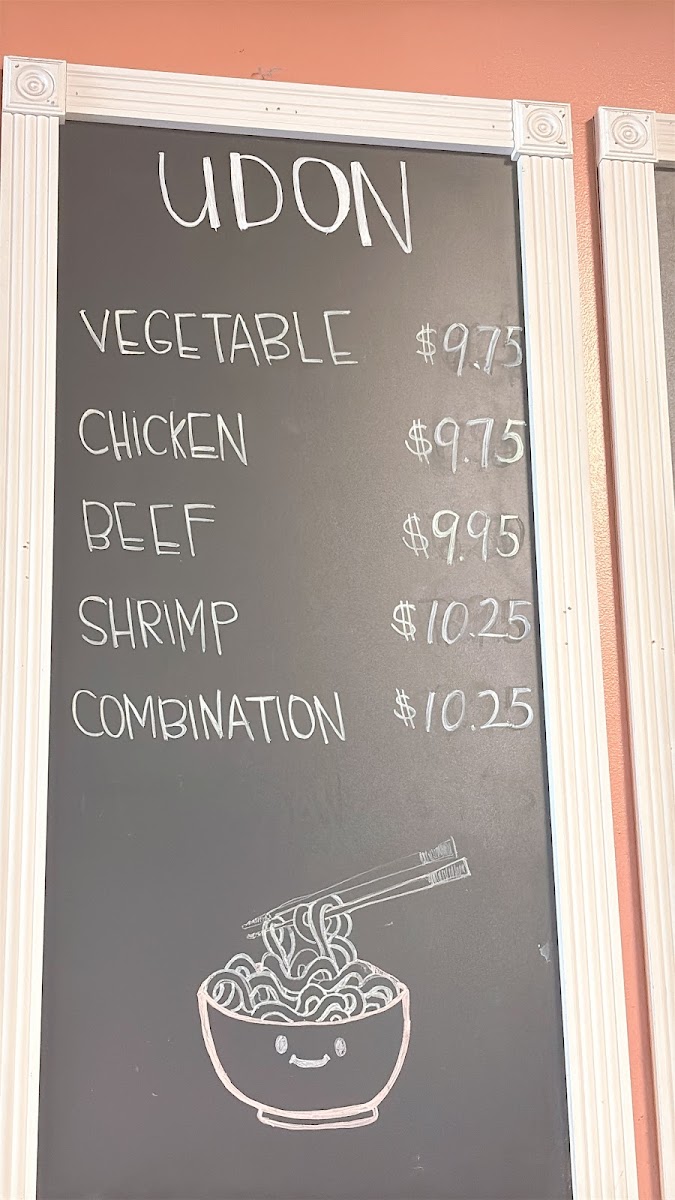 UDON
VEGETABLE $9.75
CHICKEN $9.75
BEEF $9.95
SHRIMP $10.25
COMBINATION $10.25